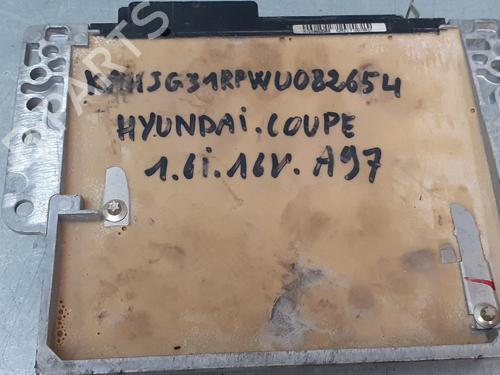 KMHJG31RPWU082654
HYUNDAi.COUPE
1.6i.16V. A97
PARTS